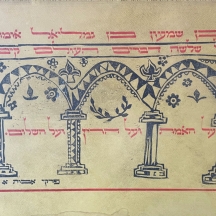 שמעון בן גמליאל
שלשה דברים העולם
על האמת ועל הדין ועל השלום
פרקי אבות א